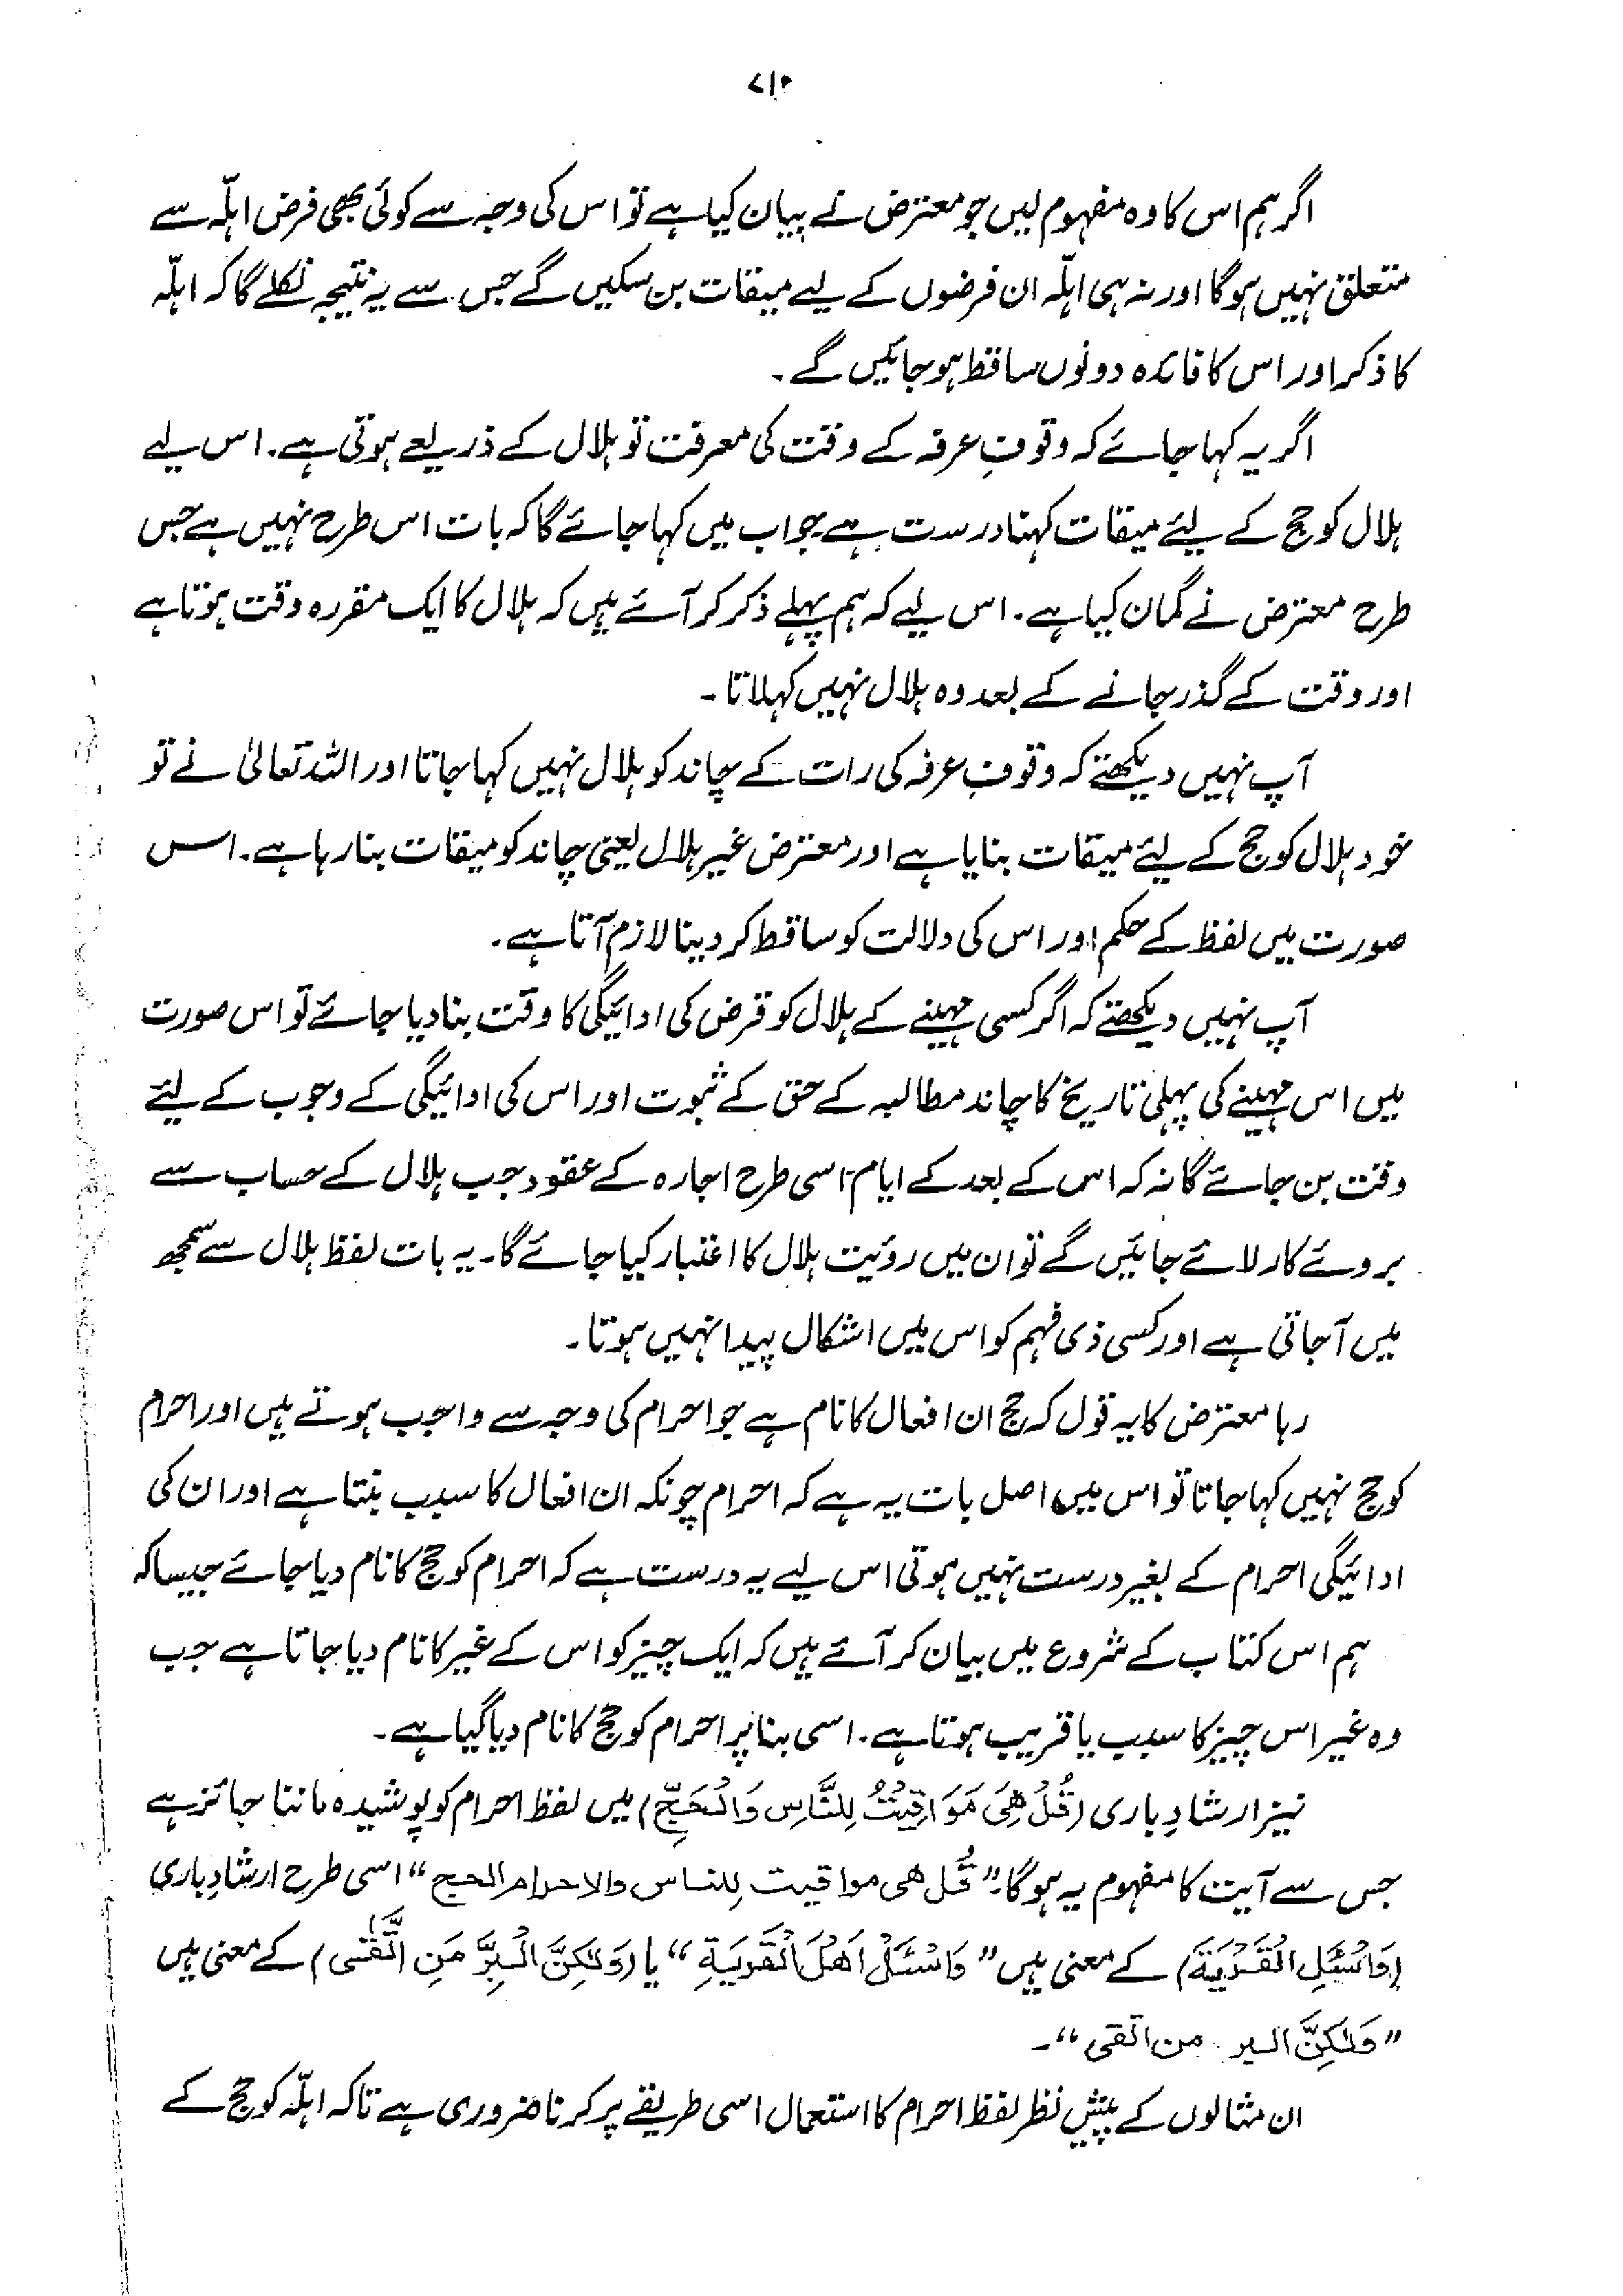 ۷۱۲
اگر ہم اس کا وہ مفہوم لیں جو معترض نے بیان کیا ہے تو اس کی وجہ سے کوئی بھی فرض اہلّہ سے
متعلق نہیں ہوگا اور نہ ہی اہلّہ ان فرضوں کے لیے میقات بن سکیں گے جس سے یہ نتیجہ نکلے گا کہ اہلّہ
کا ذکر اور اس کا فائدہ دونوں ساقط ہو جائیں گے۔
اگر یہ کہا جائے کہ وقوفِ عرفہ کے وقت کی معرفت تو ہلال کے ذریعے ہوتی ہے۔ اس لیے
ہلال کو حج کے لیئے میقات کہنا درست ہے جواب میں کہا جائے گا کہ بات اس طرح نہیں ہے جس
طرح معترض نے گمان کیا ہے۔ اس لیے کہ ہم پہلے ذکر کر آئے ہیں کہ ہلال کا ایک مقررہ وقت ہوتا ہے
اور وقت کے گذر جانے کے بعد وہ ہلال نہیں کہلاتا۔
آپ نہیں دیکھتے کہ وقوفِ عرفہ کی رات کے چاند کو ہلال نہیں کہا جاتا اور اللہ تعالیٰ نے تو
خود ہلال کو حج کے لیئے میقات بنایا ہے اور معترض غیر ہلال یعنی چاند کو میقات بنا رہا ہے۔ اس
صورت میں لفظ کے حکم اور اس کی دلالت کو ساقط کر دینا لازم آتا ہے۔
آپ نہیں دیکھتے کہ اگر کسی مہینے کے ہلال کو قرض کی ادائیگی کا وقت بنا دیا جائے تو اس صورت
میں اس مہینے کی پہلی تاریخ کا چاند مطالبہ کے حق کے ثبوت اور اس کی ادائیگی کے وجوب کے لیئے
وقت بن جائے گا نہ کہ اس کے بعد کے ایام۔ اسی طرح اجارہ کے عقود جب ہلال کے حساب سے
بروئے کار لائے جائیں گے تو ان میں روئیت ہلال کا اعتبار کیا جائے گا۔ یہ بات لفظ ہلال سے سمجھ
میں آجاتی ہے اور کسی ذی فہم کو اس میں اشکال پیدا نہیں ہوتا۔
رہا معترض کا یہ قول کہ حج ان افعال کا نام ہے جو احرام کی وجہ سے واجب ہوتے ہیں اور احرام
کو حج نہیں کہا جاتا تو اس میں اصل بات یہ ہے کہ احرام چونکہ ان افعال کا سبب بنتا ہے اور ان کی
ادائیگی احرام کے بغیر درست نہیں ہوتی اس لیے یہ درست ہے کہ احرام کو حج کا نام دیا جائے جیسا کہ
ہم اس کتاب کے شروع میں بیان کر آئے ہیں کہ ایک چیز کو اس کے غیر کا نام دیا جاتا ہے جب
وہ غیر اس چیز کا سبب یا قریب ہوتا ہے۔ اسی بنا پر احرام کو حج کا نام دیا گیا ہے۔
نیز ارشادِ باری (قُلْ هِیَ مَوَاقِیْتُ لِلنَّاسِ وَالْحَجِّ) میں لفظ احرام کو پوشیدہ ماننا جائز ہے
جس سے آیت کا مفہوم یہ ہوگا۔ ”قُل هی مواقیت لِلناس والاحرام الحج“ اسی طرح ارشادِ باری
(وَاسْئَلِ الْقَرْیَةَ) کے معنی ہیں ”وَاسْئَلْ اَهْلَ الْقَرْیَةِ“ یا (وَلٰکِنَّ الْبِرَّ مَنِ اتَّقٰی) کے معنی ہیں
”وَلٰکِنَّ البر من اتقی“۔
ان مثالوں کے پیشِ نظر لفظ احرام کا استعمال اسی طریقے پر کرنا ضروری ہے تاکہ اہلّہ کو حج کے